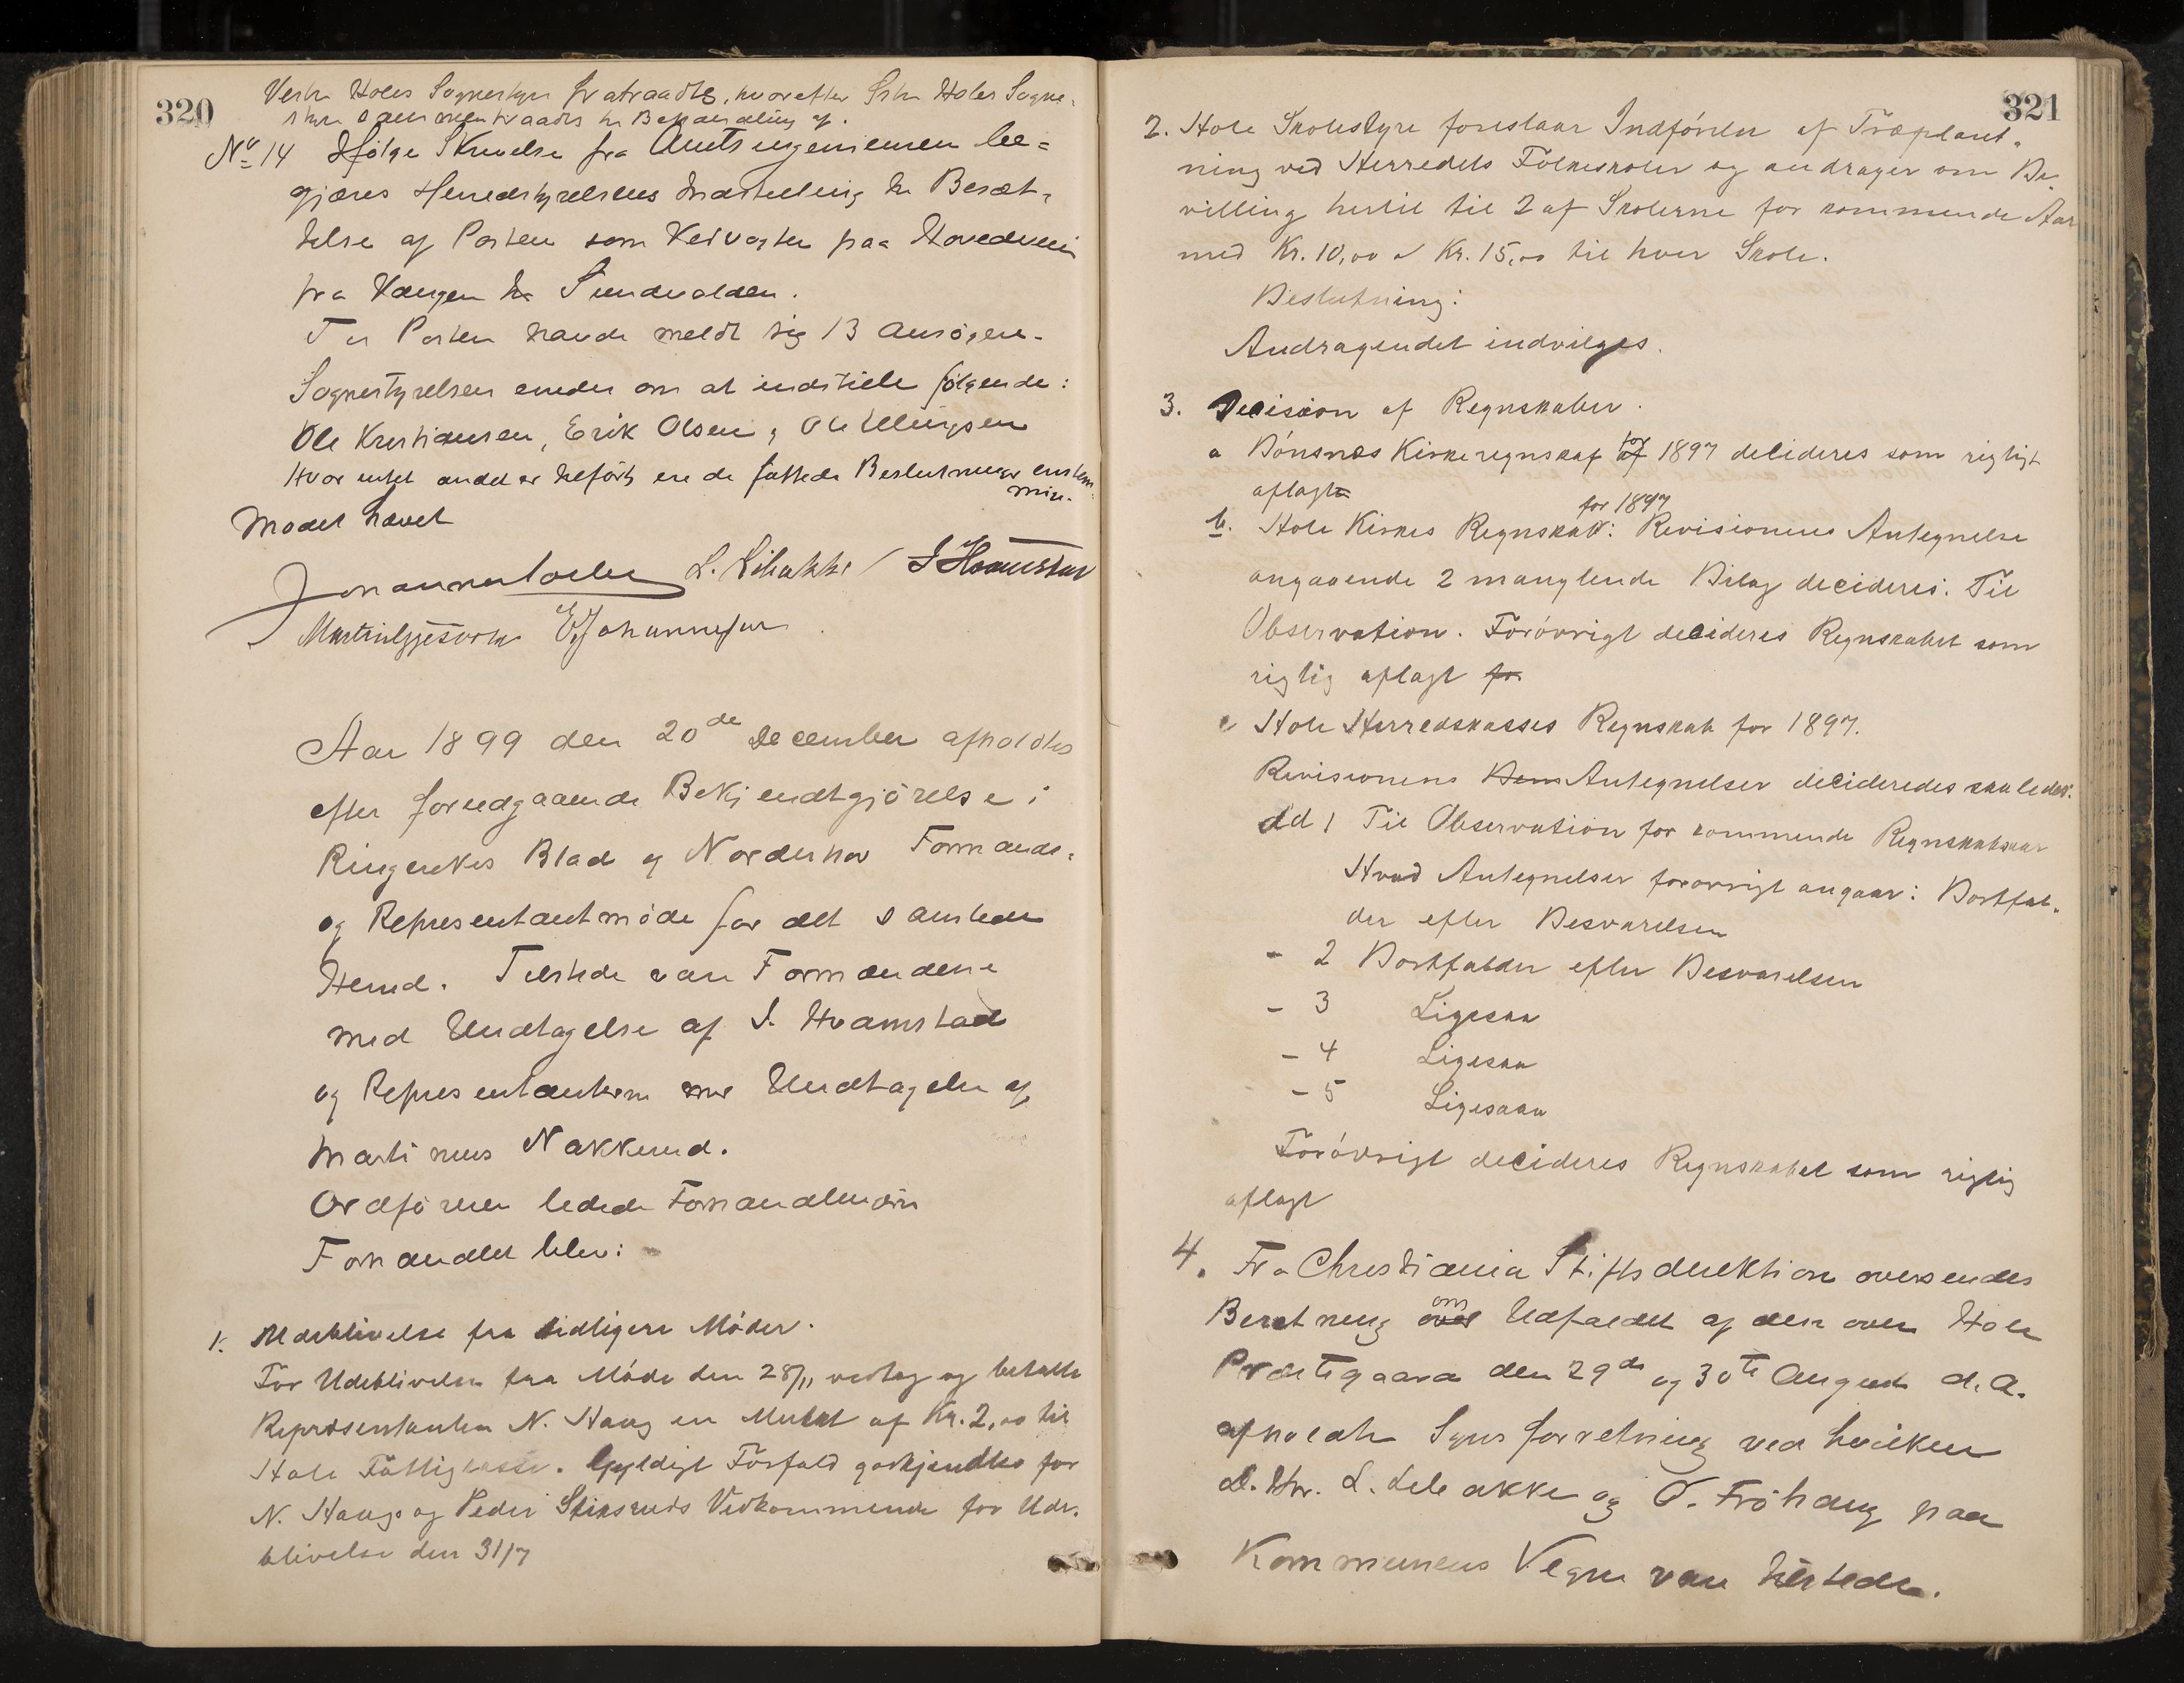 320
Vestre Holes Sognestyre fratraadte, hvorefter Østre Holes Sogne-
styre sammentraadte til Behandling af.
No 14 Ifølge Skrivelse fra Amtsingeniøren be=
gjæres Herredstyrelsens Indstilling til Besæt-
telse af Posten som Veivogter paa Hovedveien
fra Vængen til Sundvolden.
Til Posten havde meldt sig 13 Ansøgere.
Sognestyrelsen enedes om at indstille følgende:
Ole Kristiansen, Erik Olsen, Ole Ellingsen
Hvor intet andet er tilført ere de fattede Beslutninger enstem-
mige.
Mødet hævet
L. Libakke / I Hvamstad
E. Johannesen
Aar 1899 den 20de December afholdtes
efter foregaaende Bekjendtgjørelse i
Ringerikes Blad og Norderhov Formands-
og Representantmøde for det samlede
Herred. Tilstede vare Formændene
med Undtagelse af I. Hvamstad
og Representanterne med Undtagelse af
Martinus Nakkerud.
Ordføreren ledede Forhandlingerne
Forhandlet blev:
1. Udeblivelse fra tidligere Møder.
For Udeblivelse fra Møde den 28/11 vedtog og betalte
Repræsentanten N. Haug en Mulkt af Kr. 2,00 til
Hole Fattigkasse. Gyldigt Forfald godkjendtes for
N. Haugs og Peder Stiksruds Vedkommende for Ude-
blivelse den 31/7
321
2. Hole Skolestyre foreslaar Indførelse af Træplant-
ning ved Herredets Folkeskoler og andrager om Be-
villing hertil til 2 af Skolerne for kommende Aar
med Kr. 10,00 a Kr. 15,00 til hver Skole.
Beslutning:
Andragendet indvilges.
3. Decision af Regnskaber.
a Bönsnæs Kirkeregnskap af for 1897 decideres som rigtigt
aflagt
b. Hole Kirkes Regnskab for 1897: Revisionens Antegnelse
angaaende 2 manglende Bilag decideres: Til
Observation. Forøvrigt decideres Regnskabet som
rigtig aflagt for
c Hole Herredskasses Regnskab for 1897.
Revisionens Antegnelser decideredes saaledes:
Ad 1 Til Observation for kommende Regnskabsaar
Hvad Antegnelser forøvrigt angaar: Bortfal-
der efter Besvarelsen
- 2 Bortfalder efter Besvarelsen
- 3 Ligesaa
- 4 Ligesaa
- 5 Ligesaa
Forøvrigt decideres Regnskabet som rigtig
aflagt
4. Fra Christiania Stiftsdirektion oversendes
Beretning over om Udfaldet af den over Hole
Præstegaard den 29de og 30te August d. A.
afholdte Synsforretning ved hvilken
d. Hr. L. Libakke og O. Fröhaug paa
Kommunens Vegne vare tilstede.